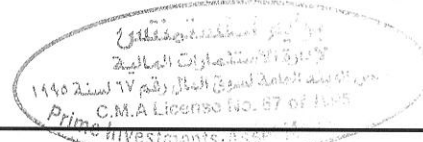 برايم انفستمنتس
لإدارة الاستثمارات المالية
الهيئة العامة لسوق المال رقم ٦٧ لسنة ١٩٩٥
C.M.A License No. 67 of 1995
Prime Investments